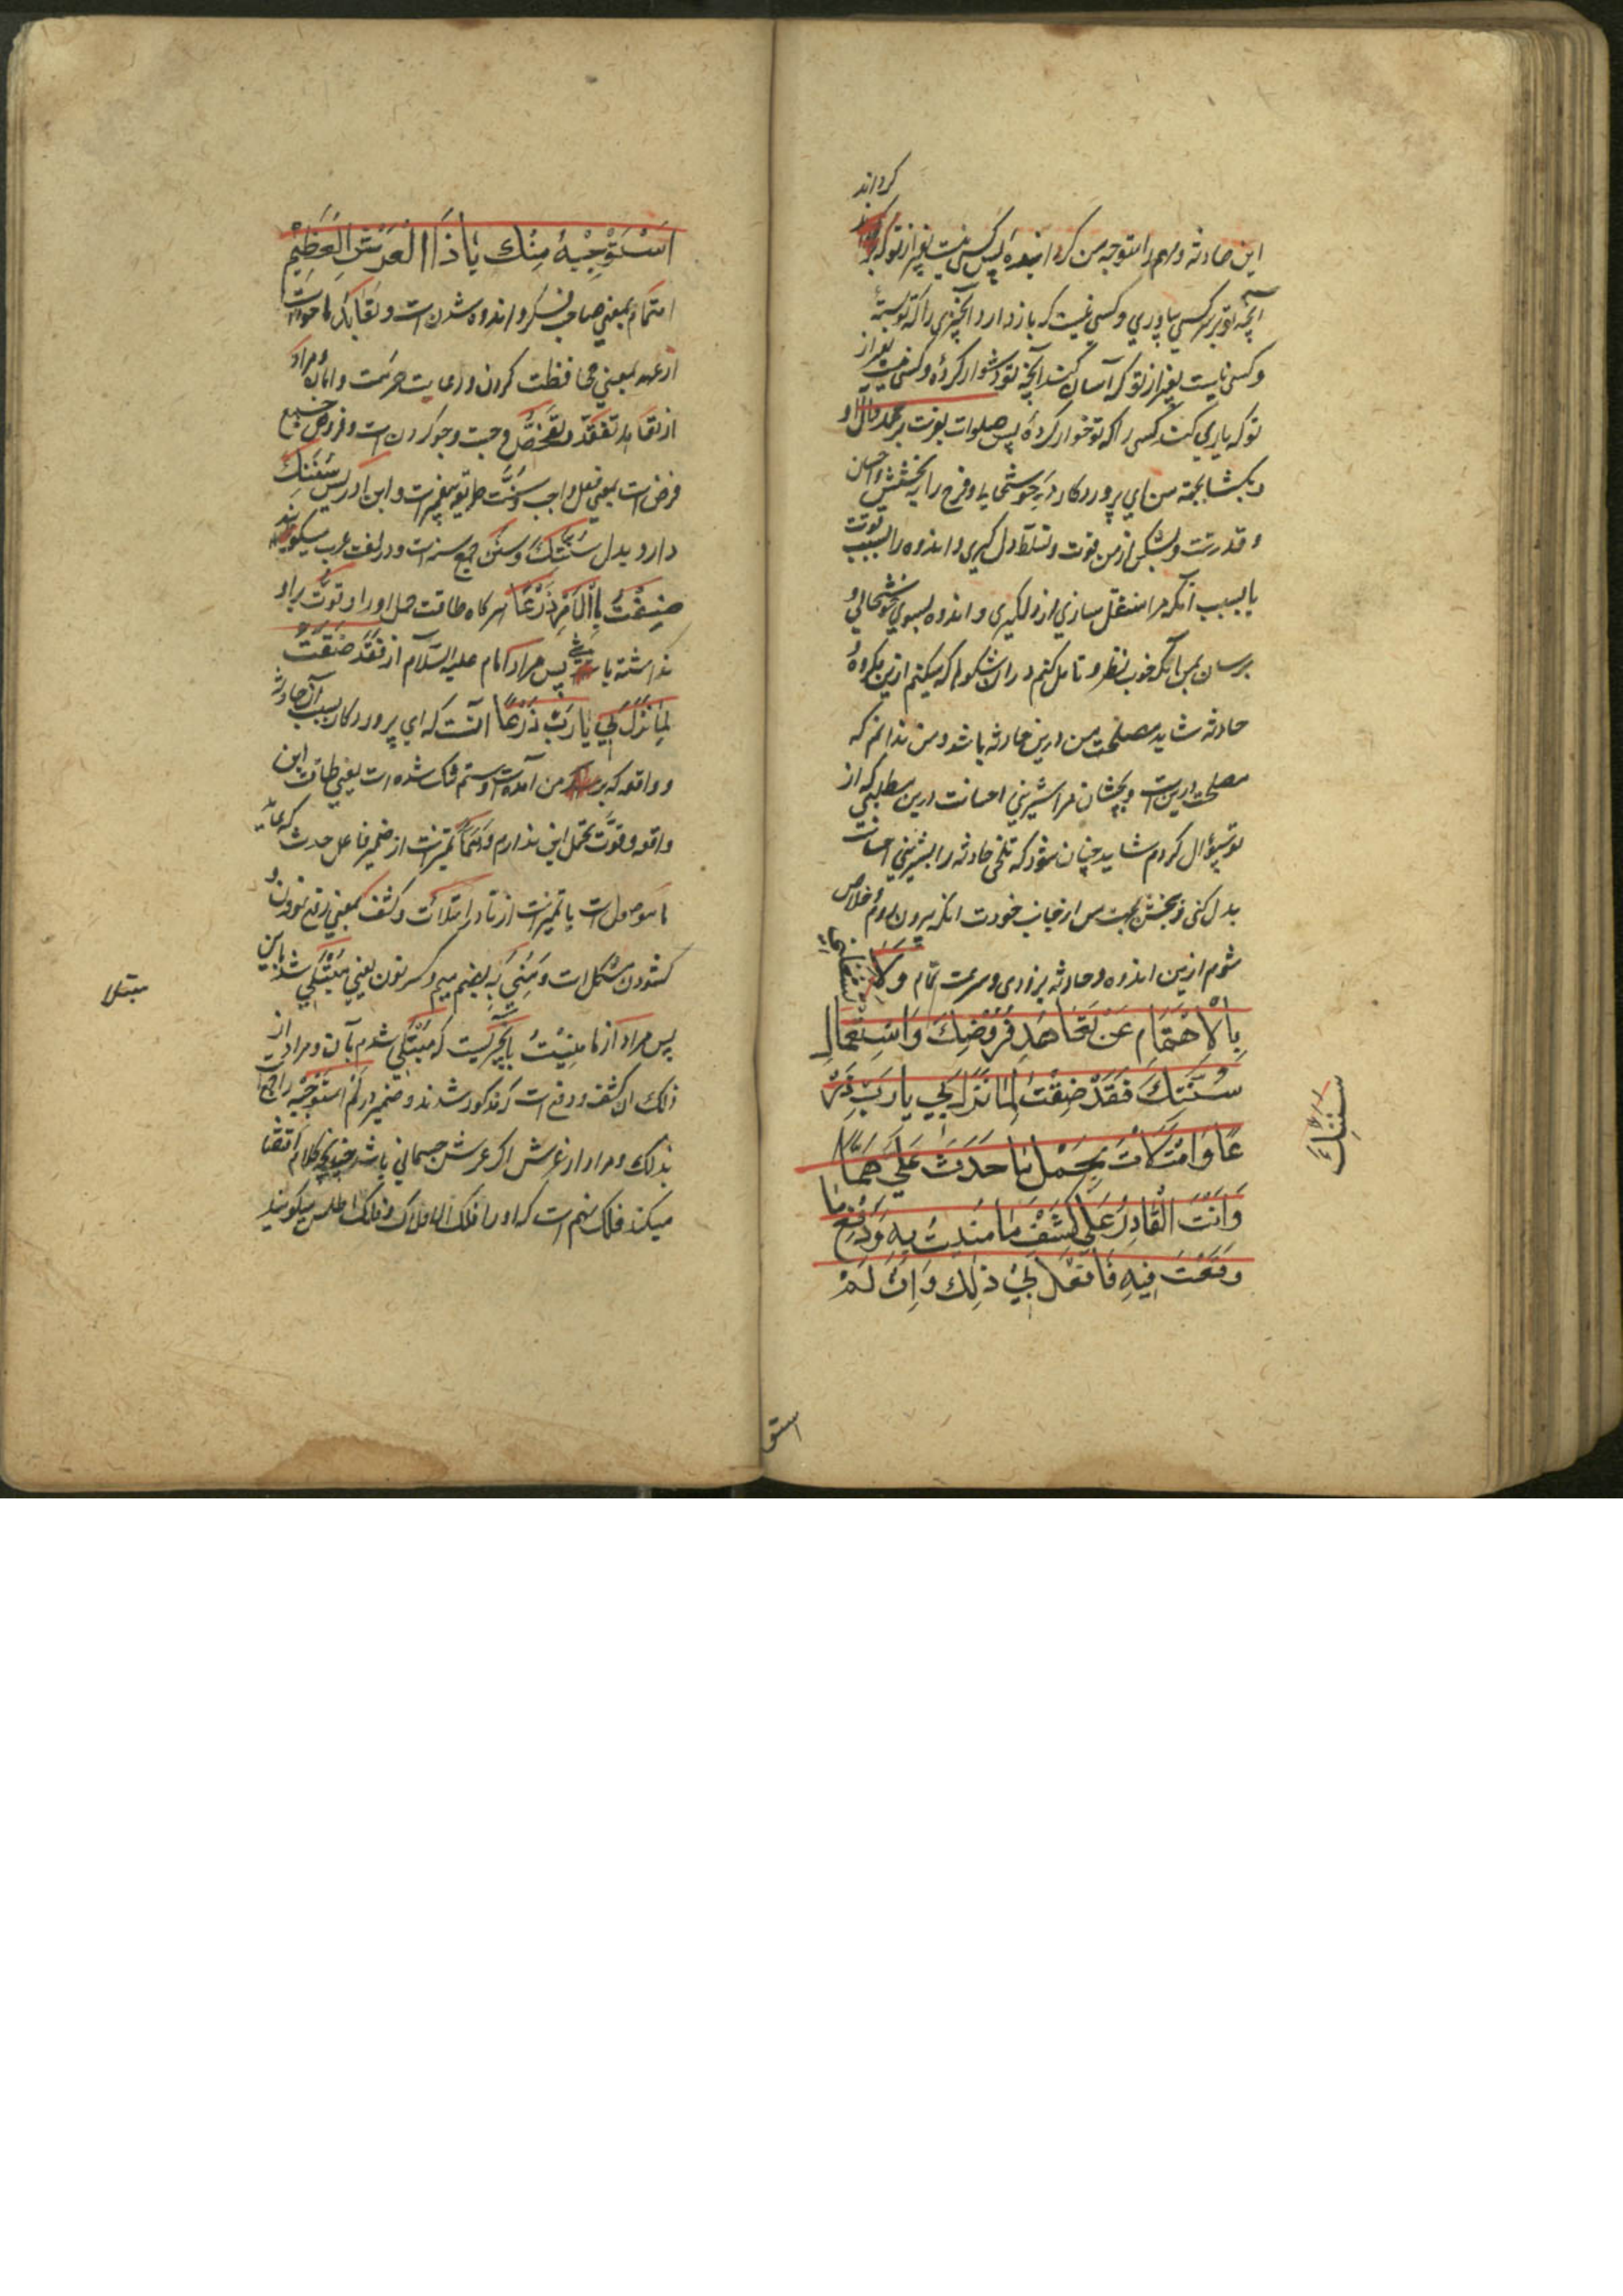 گرداند
این حادثه و مهم را متوجه من گردانیده پس کسی نیست بغیر از تو که
آنچه تو بر سر کسی بیاوری و کسی نیست که باز دارد آنچیزی را که تو بسته
و کسی نیست بغیر از تو که آسان کند آنچه تو دشوار کرده و کسی نیست بغیر از
تو که یاری کند کسی را که تو خوار کردهٔ پس صلوات بفرست بر محمد وآل او
و بکشا بجهة من ای پروردکار در خوشحالی و فرج را به بخشش و احسان
و قدرتت و بشکن از من قوت و تسلط دل کیری و اندوه را بسبب قوتت
یا بسبب آنکه مرا منتقل سازی از دلکیری و اندوه بسوی خوشحالی و
برسان بمن آنکه خوب نظر و تامل کنم در ان شکوه که میکنم ازین مکروه و
حادثه شاید مصلحت من درین حادثه باشد و من ندانم که
مصلحت درین است و بچشان مرا شیرینی احسانت درین مطلبی که از
تو سؤال کردم شاید چنان شود که تلخی حادثه را بشیرینی احسانت
بدل کنی و ببخش بجهت من از جانب خودت آنکه بیرون روم و خلاص
شوم ازین اندوه و حادثه بزودی و سرعت تمام وَلا تشغلنی
بِالاِهْتِمَامِ عَنْ تَعَاهُدِ فُرُوضِكَ وَاسْتِعْمَالِ
سُنَّتِكَ فَقَدْ ضِقْتُ لِمَا نَزَلَ بِي يا رَبِّ ذَرْ
عًا وَامْتَلَأْتُ بِحَمْلِ مَا حَدَثَ عَلَيَّ هَمًّا
وَأَنْتَ الْقَادِرُ عَلَى كَشْفِ مَا مُنِيتُ بِهِ وَدَفْعِ مَا
وَقَعْتُ فِيهِ فَافْعَلْ بِي ذٰلِكَ وَاِنْ لَمْ
سُنَنِكَ
استو
اَسْتَوْجِبْهُ مِنْكَ يَا ذَا الْعَرْشِ الْعَظِيمِ
اهتمام بمعنی صاحب فکر و اندوه شدن است و تعاهد
از عهد بمعنی محافظت کردن و رعایت حرمت و امان و مراد
از تعاهد تفقد و تفحص و جست و جو کردن است و فروض جمع
فرض است بمعنی فعل واجب و سنت طریقه پیغمبر است و ابن ادریس سُنَنِكَ
دارد بدل سُنَّتِكَ و سنن جمع سنه است و در لغت عرب میکویند
ضِقْتُ بِالْاَمْرِ ذَرْعًا هر کاه طاقت حمل او را و قوت بر او
نداشته باشی پس مراد امام علیه السلام از فَقَدْ ضِقْتُ
لِمَا نَزَلَ بِي يَا رَبِّ ذَرْعًا آنست که ای پروردکار بسبب آن حادثه
و واقعه که بر من آمده است دستم تنک شده است یعنی طاقت این
واقعه و قوت تحمل این ندارم و هَمًّا تمیز است از ضمیر فاعل حدث که عاید
ما موصول است یا تمیز است از تاء در امتلأت و کشف بمعنی رفع نمودن و
کشودن مشکل است و مُنِيَ به بضم میم و کسر نون یعنی مبتلی شد باین
پس مراد از ما مُنِيتُ به آنچیزیست که مبتلی شدم بآن و مراد از
ذلك ان کشف و دفع است که مذکور شدند و ضمیر در لم استوجبه راجع است
بذلك و مراد از عرش اکر عرش جسمانی باشد چنانچه کلام اقتضا
میکند فلک نهم است که او را فلک الافلاک و فلک اطلس میکویند
مبتلا